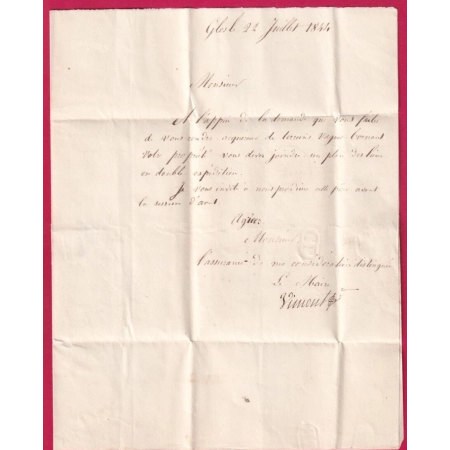 Glos le 22 Juillet 1844
Monsieur
A l'appui de la demande que vous faites
de vous rendre acquereur de terrain vague bornant
votre propriété vous devez joindre un plan des lieux
en double expédition.
Je vous invite à
la session d'aout
Agréez
Monsieur
l'assurance de ma considération distinguée
Le Maire
Vimont